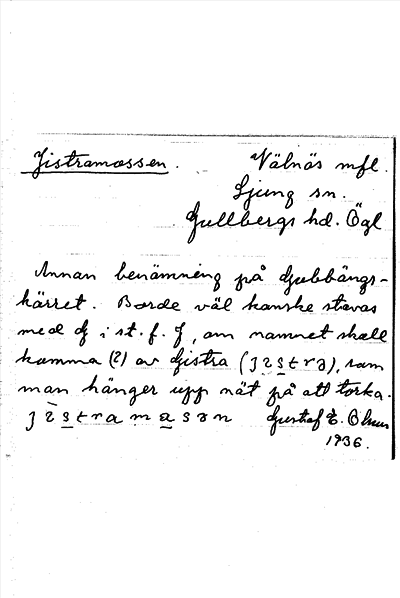 Jistramossen.
Välnäs mfl.
Ljung sn.
Gullbergs hd. Ögl
Annan benämning på Gubbängs-
kärret. Borde väl kanske stavas
med G i st. f. J, om namnet skall
komma (?) av Gistra (), som
man hänger upp nät på att torka.
Gustaf E. 
1936.